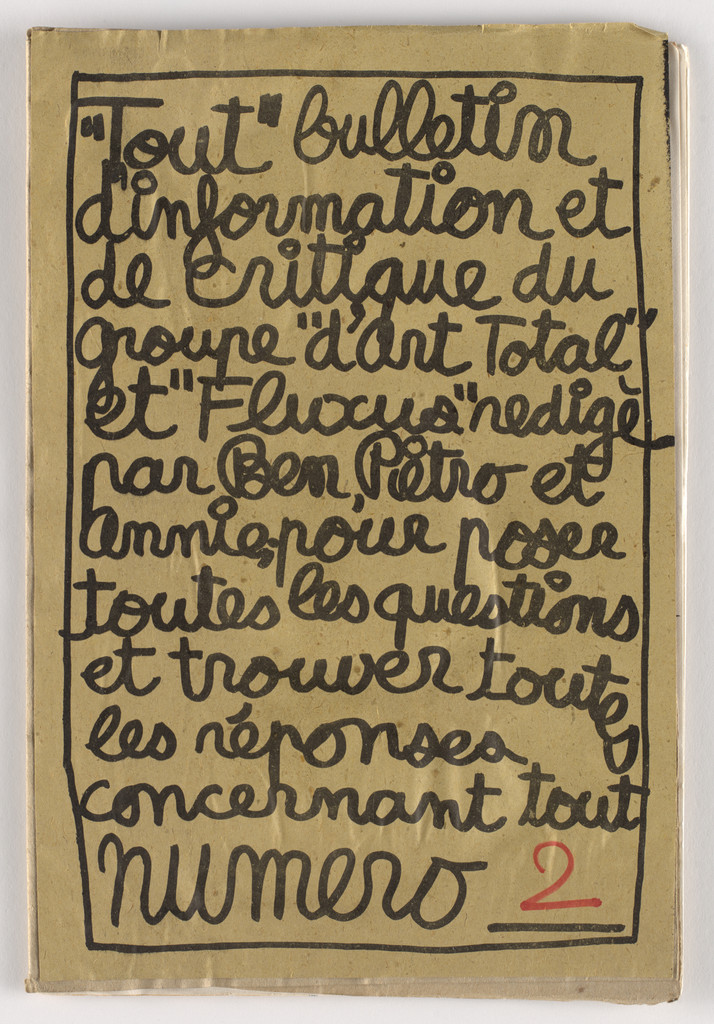 "Tout" bulletin
d'information et
de critique du
groupe "d'art Total"
et "Fluxus" redigé
par Ben, Piètro et
annie, pour poser
toutes les questions
et trouver toutes
les réponses
concernant tout
numero 2